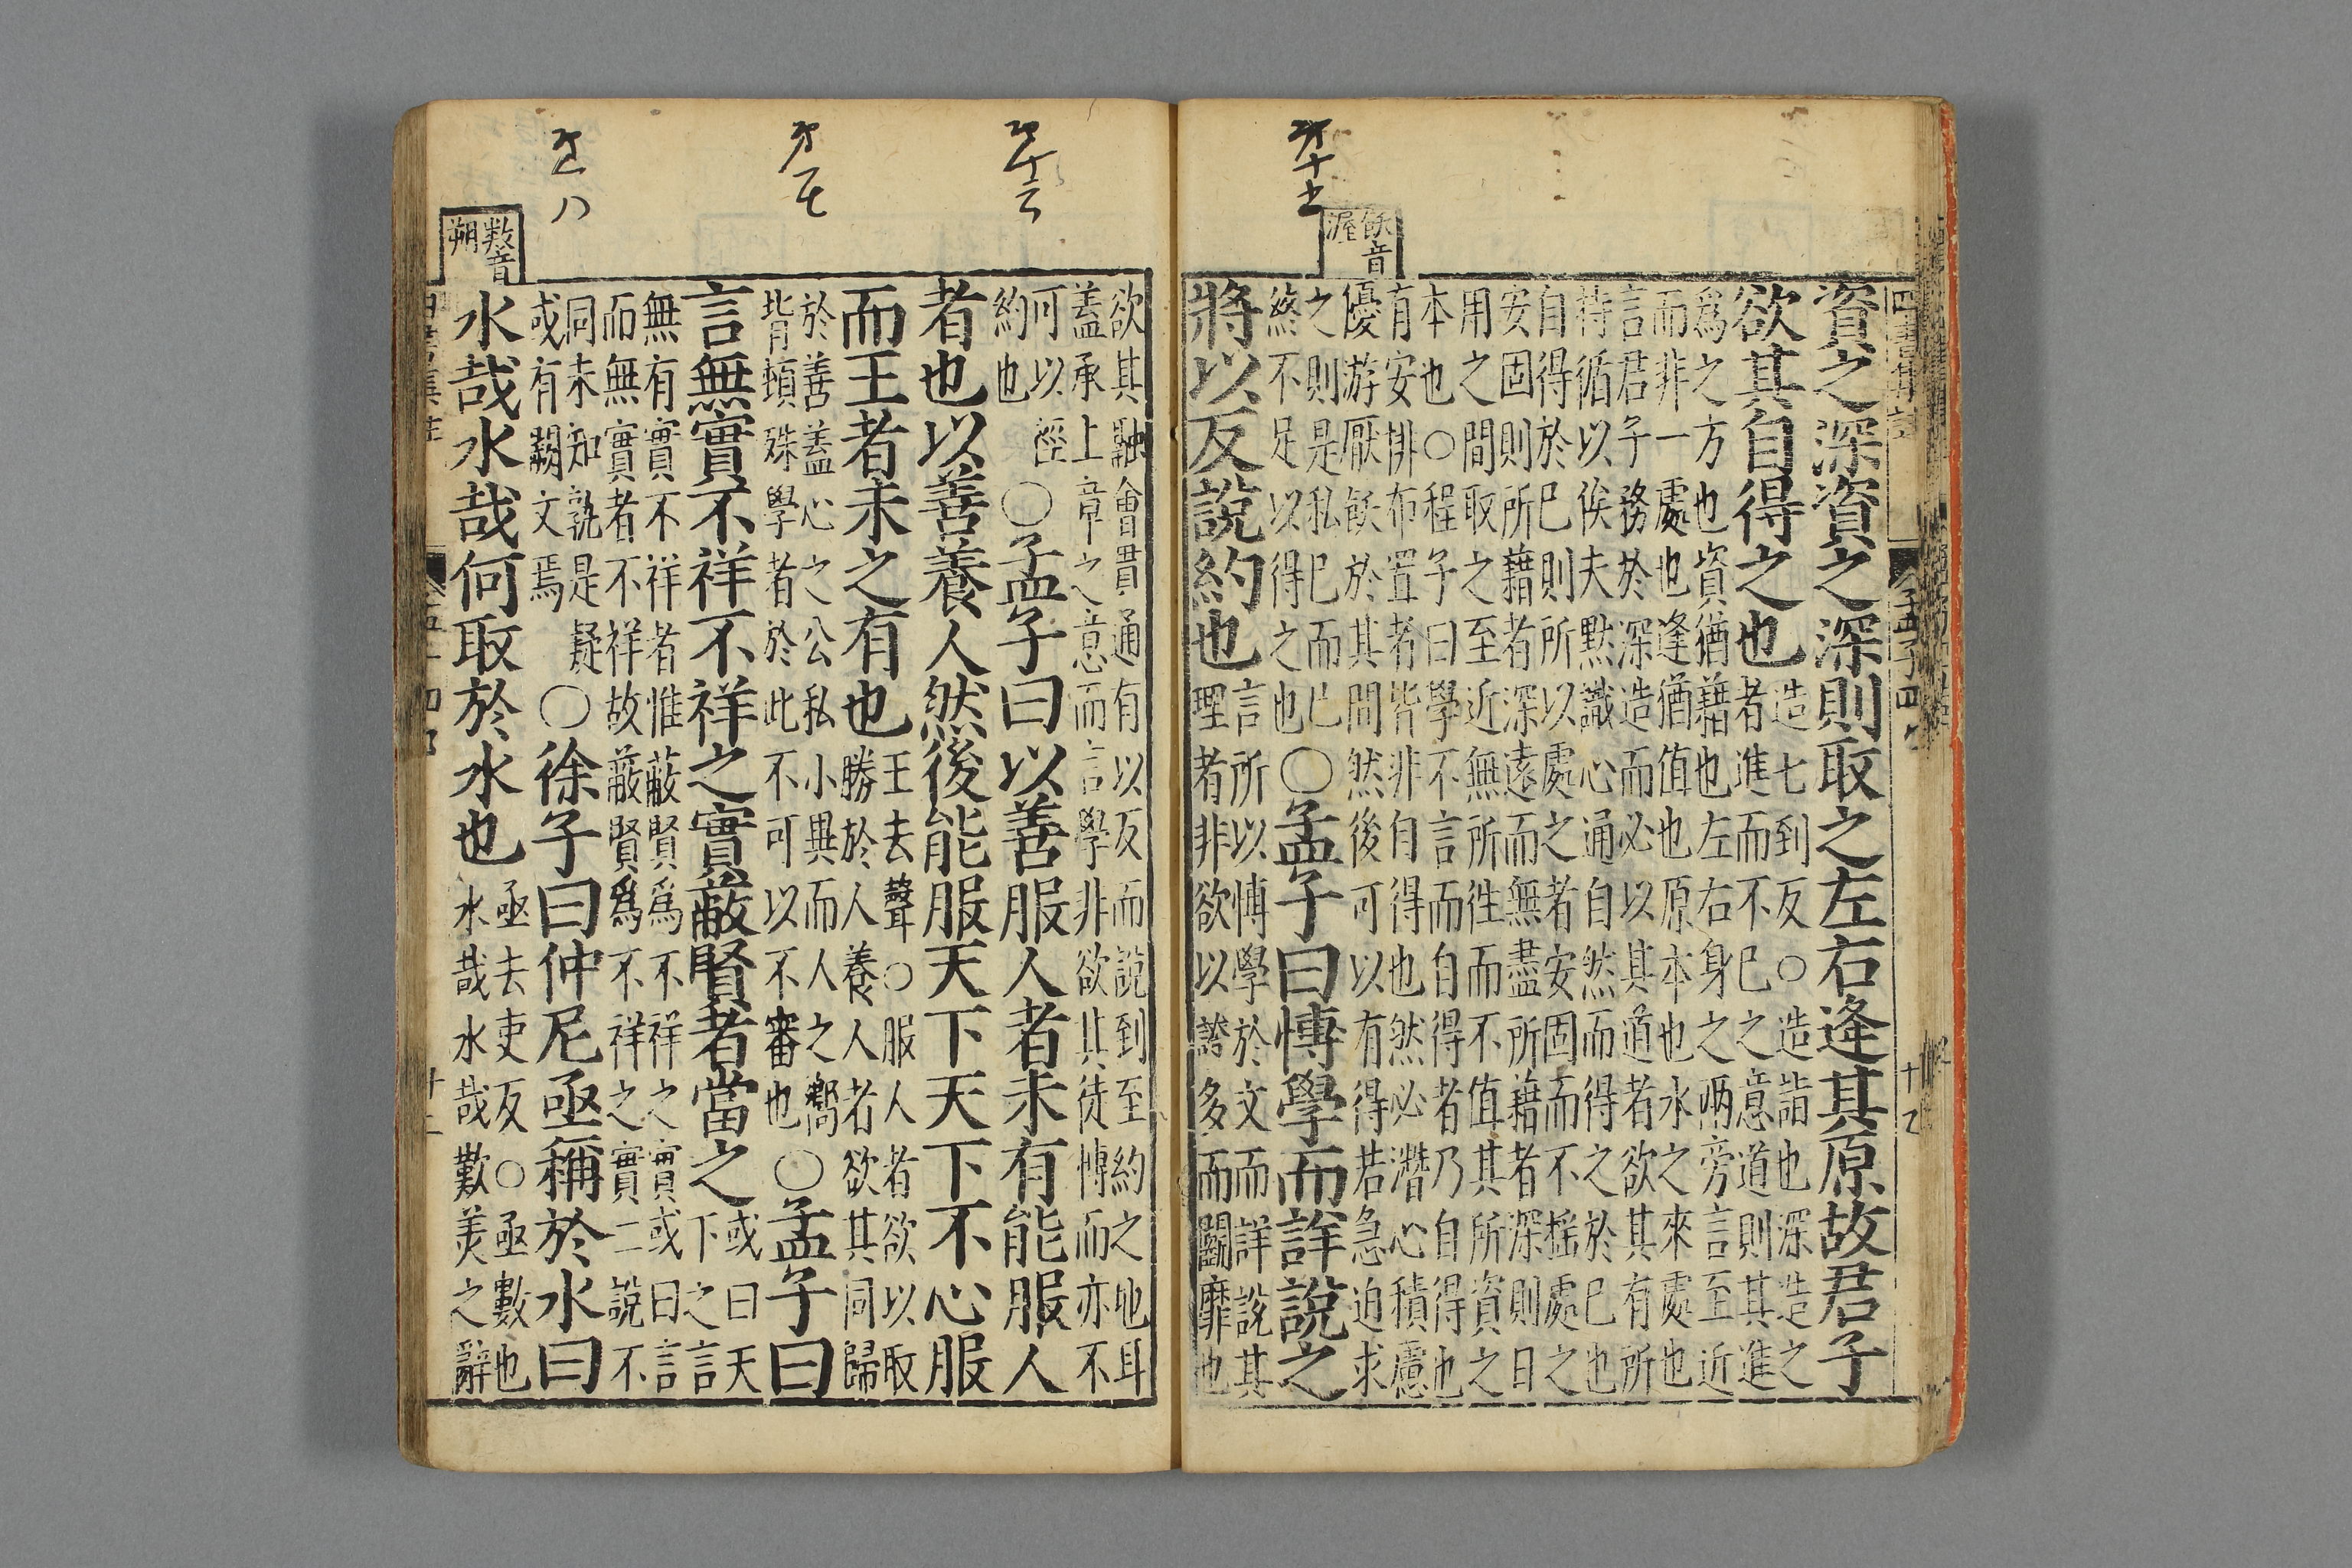 四書集註　孟子四
資之深資之深則取之左右逢其原故君子
欲其自得之也
造七到反○造詣也深造之
者進而不已之意道則其進
爲之方也資猶藉也左右身之兩旁言至近
而非一處也逢猶值也原本也水之來處也
言君子務於深造而必以其道者欲其有所
持循以俟夫默識心通自然而得之於己也
自得於己則所以處之者安固而不搖處之
安固則所藉者深遠而無盡所藉者深則日
用之間取之至近無所往而不值其所資之
本也○程子曰學不言而自得者乃自得也
有安排布置者皆非自得也然必潛心積慮
優游厭飫於其間然後可以有得若急迫求
飫音
渥
之則是私己而已
終不足以得之也
○孟子曰博學而詳說之
將以反說約也
言所以博學於文而詳說其
理者非欲以誇多而鬭靡也
欲其融會貫通有以反而說到至約之地耳
蓋承上章之意而言學非欲其徒博而亦不
可以徑
約也
○孟子曰以善服人者未有能服人
者也以善養人然後能服天下天下不心服
而王者未之有也
王去聲○服人者欲以取
勝於人養人者欲其同歸
於善蓋心之公私小異而人之嚮
背頓殊學者於此不可以不審也
○孟子曰
言無實不祥不祥之實蔽賢者當之
或曰天
下之言
無有實不祥者惟蔽賢爲不祥之實或曰言
而無實者不祥故蔽賢爲不祥之實二說不
同未知孰是疑
或有闕文焉
○徐子曰仲尼亟稱於水曰
數音
朔
水哉水哉何取於水也
亟去吏反○亟數也
水哉水哉歎美之辭